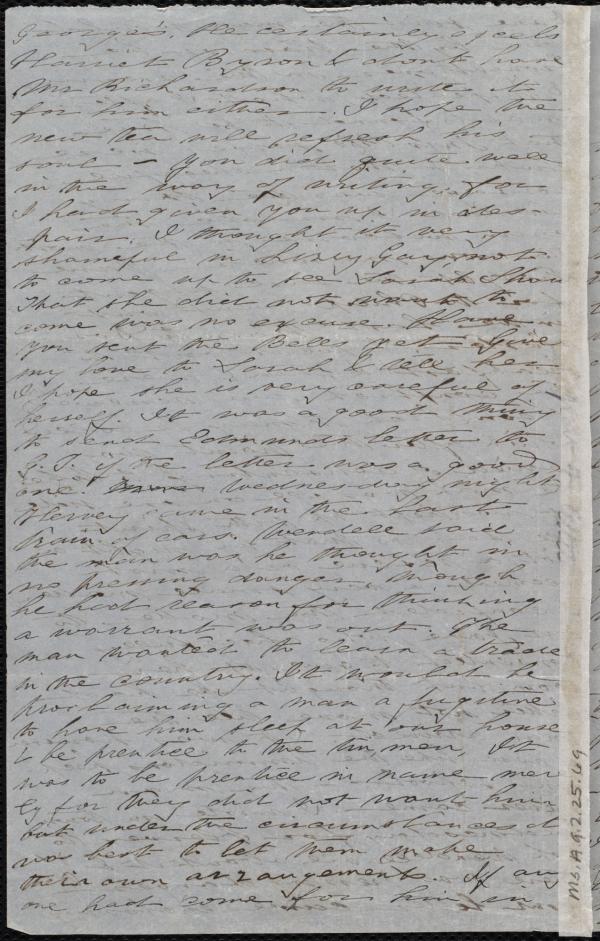 George's. He certainly excels
Harriet Byron & don't have
Mr Richardson to write it
for him either. I hope the
new tea will refresh his
soul – you did quite well
in the way of writing, for
I had given you up in des-
pair. I thought it very
shameful in Lizzy Gay not
to come up to see Sarah Shaw
That she did not want to
come was no excuse. Have
you sent the Bells yet. Give
my love to Sarah & tell her
I hope she is very careful of
herself. It was a good thing
to send Edmunds letter to
G.T. if the letter was a good
one. Wednesday night
Hervey came in the last
train of cars. Wendell said
the man was he thought in
no pressing danger, though
he had reason for thinking
a warrant was out. The
man wanted to learn a trade
in the country. It would be
proclaiming a man a fugitive
to have him sleep at our house
& be prentice to the tin men. It
was to be prentice in name mere
ly for they did not want him
but under the circumstances it
was best to let them make
their own arrangements. If any
one had come for him in
Ms.A.9.2.25.69